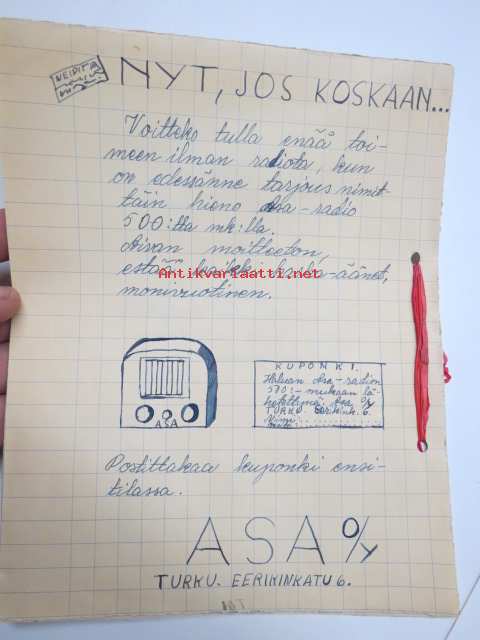 NYT, JOS KOSKAAN...
Voitteko tulla enää toi-
meen ilman radiota, kun
on edessänne tarjous nimit-
täin hieno Asa-radio
500:tta mk:lla.
Aivan moitteeton,
estää kaikki
-äänet,
Antikvariaatti.net
monivuotinen.
ASA
KUPONKI.
Haluan Asa-radion
570:- mukaan lä-
hetettynä. Asa O/Y
TURKU. Eerikink. 6.
Nimi
Postittakaa kuponki ensi-
tilassa.
ASA O/Y
TURKU. EERIKINKATU 6.